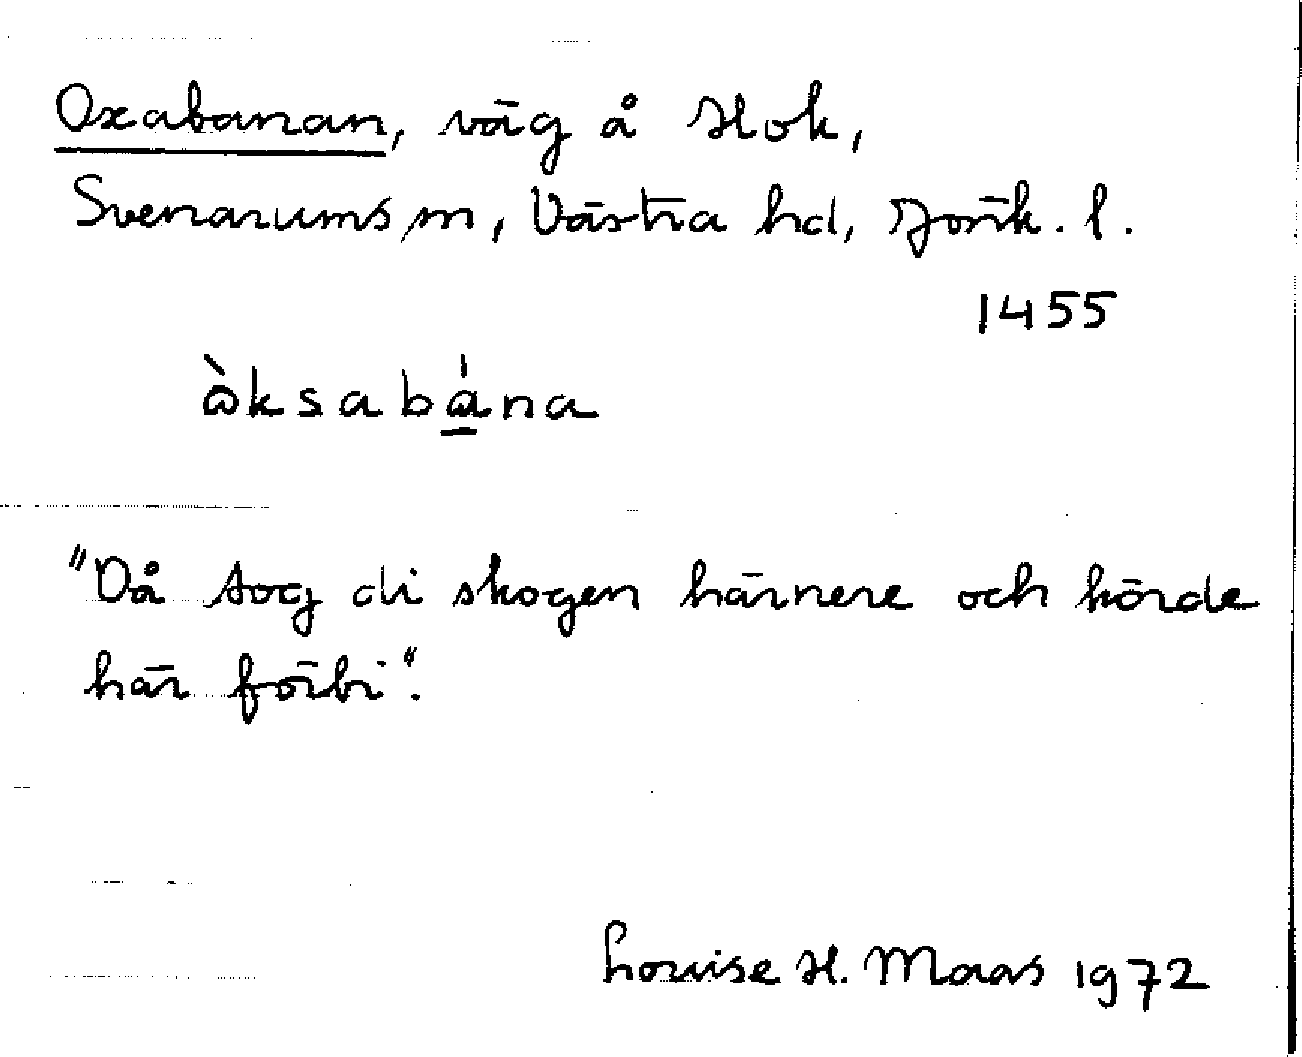 Oxabanan, väg å Hok,
Svenarums sn, Västra hd, Jönk. l.
1455
ὼksabώ̲na
"Då tog di skogen härnere och körde
här förbi".
Louise H. Maas 1972